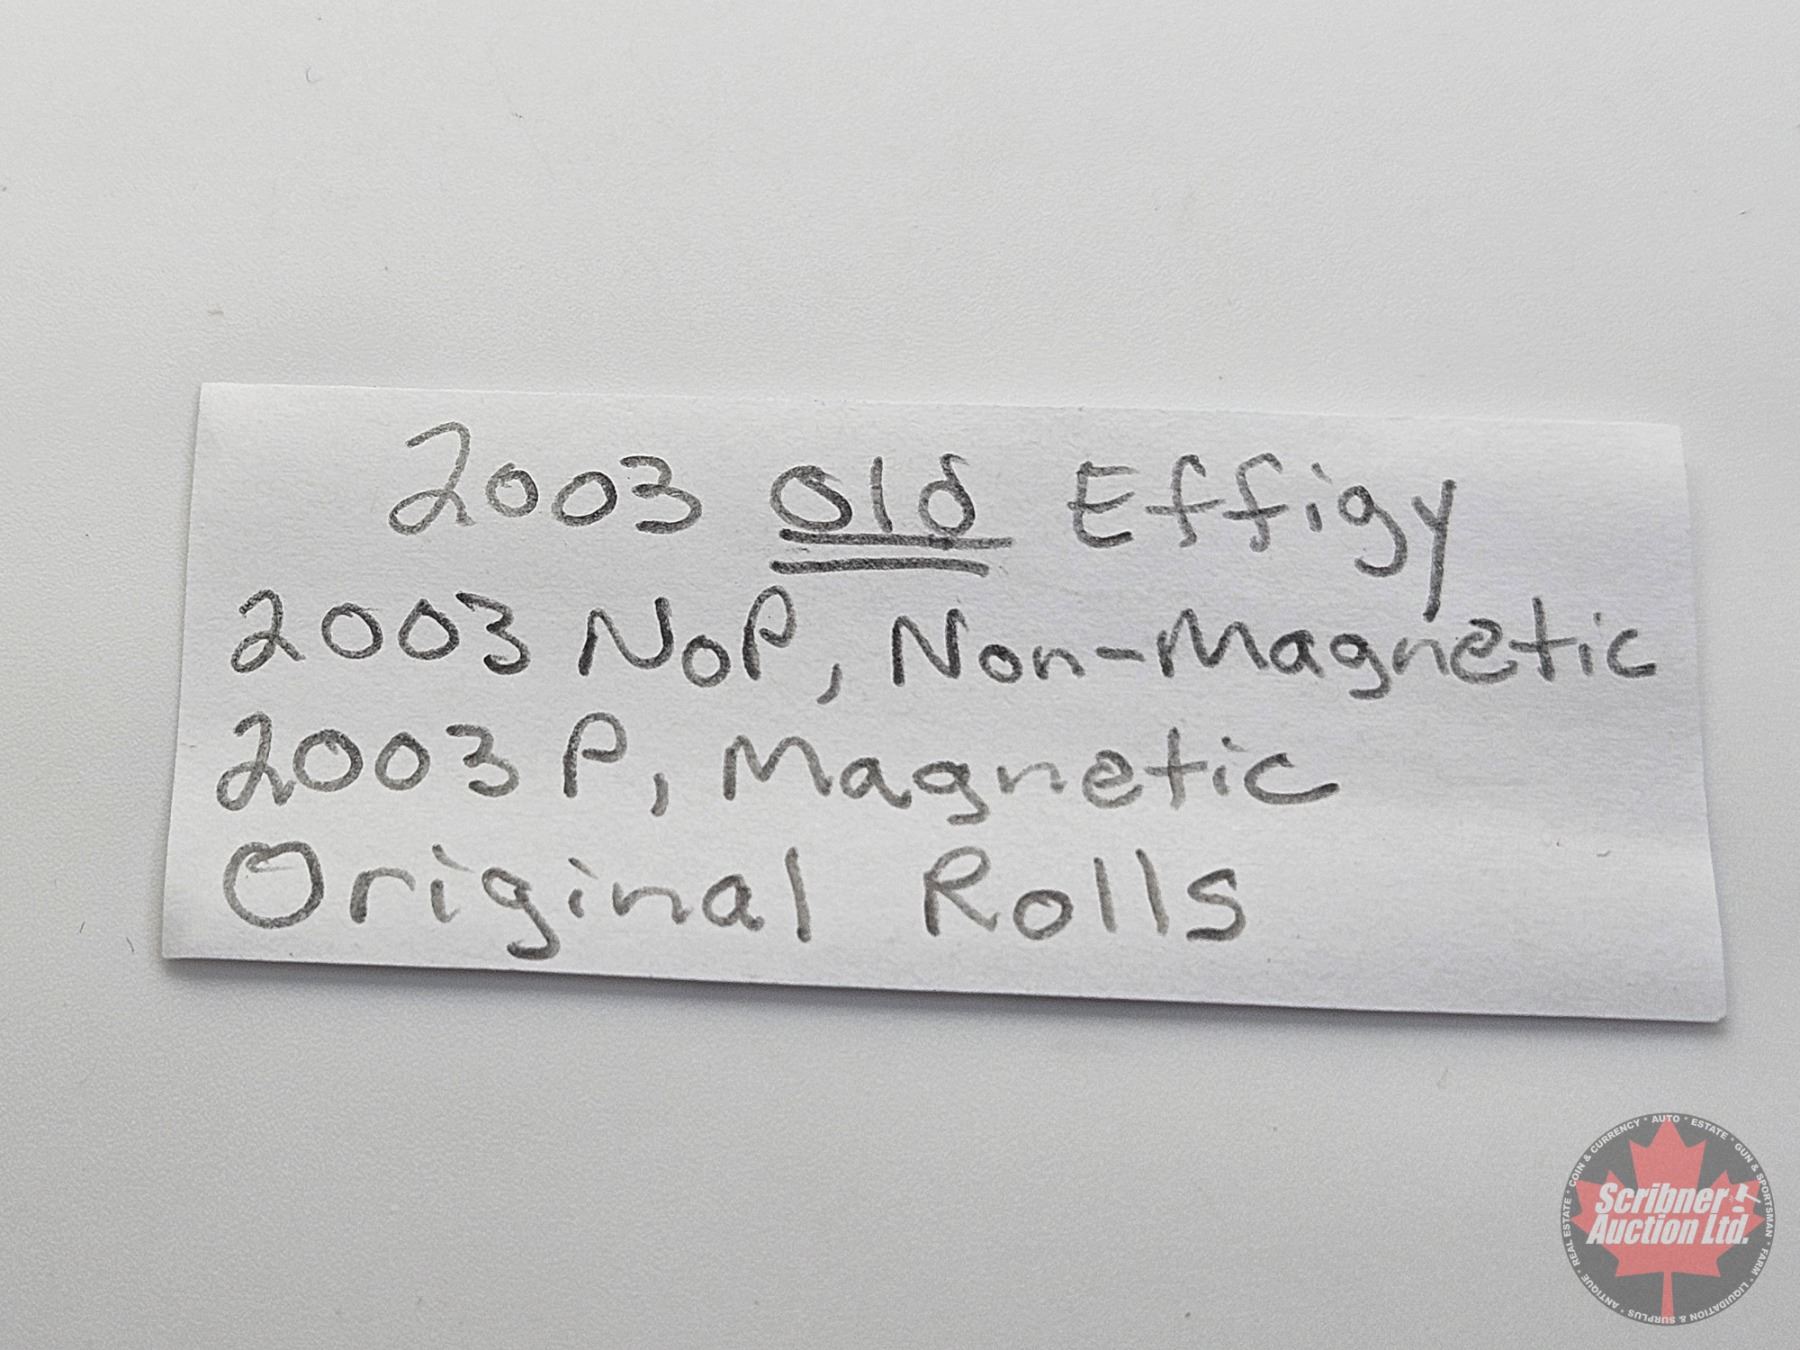 2003 old Effigy
2003 NoP, Non-Magnetic
2003 P, Magnetic
Original Rolls
COIN & CURRENCY • AUTO • ESTATE • GUN & SPORTSMAN • FARM • LIQUIDATION & SURPLUS • ANTIQUE • REAL ESTATE •
Scribner
Auction Ltd.